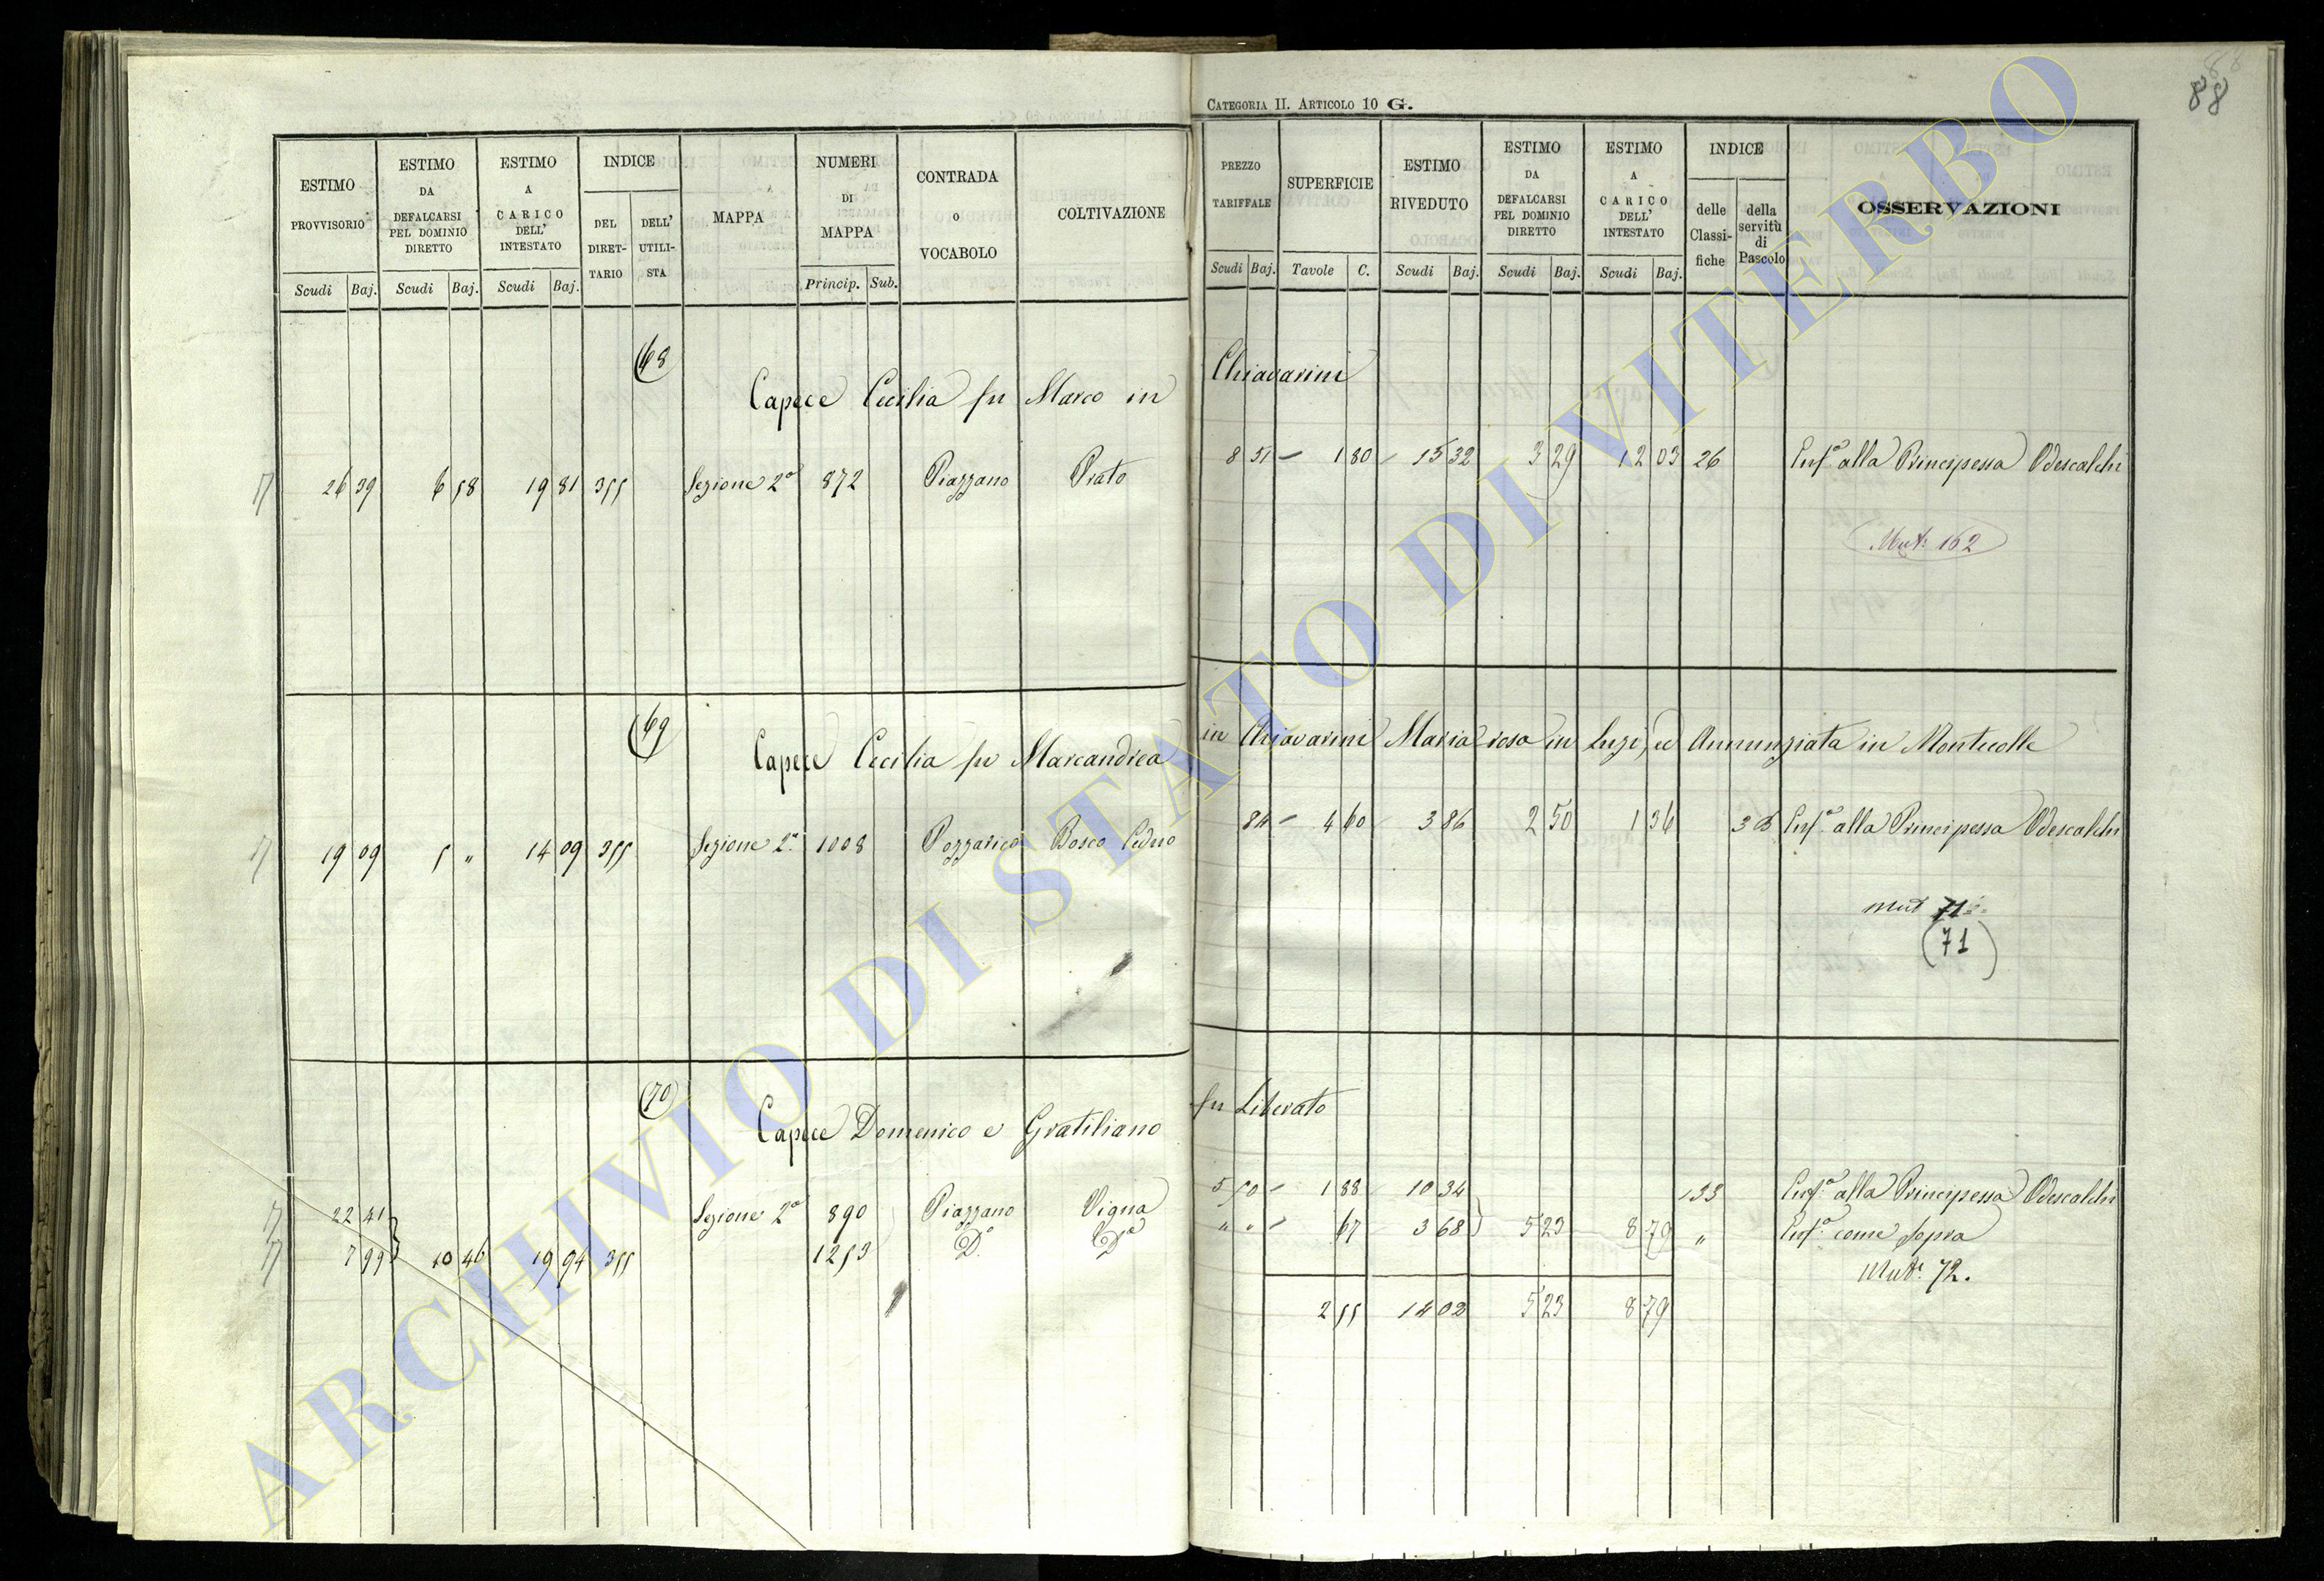 88
CATEGORIA II. ARTICOLO 10 G.
ESTIMO PROVVISORIO Scudi Baj.
ESTIMO DA DEFALCARSI PEL DOMINIO DIRETTO Scudi Baj.
ESTIMO A CARICO DELL' INTESTATO Scudi Baj.
INDICE DEL DIRETTARIO DELL' UTILISTA
MAPPA
NUMERI DI MAPPA Princip. Sub.
CONTRADA O VOCABOLO
COLTIVAZIONE
PREZZO TARIFFALE Scudi Baj.
SUPERFICIE Tavole C.
ESTIMO RIVEDUTO Scudi Baj.
ESTIMO DA DEFALCARSI PEL DOMINIO DIRETTO Scudi Baj.
ESTIMO A CARICO DELL' INTESTATO Scudi Baj.
INDICE delle Classifiche della servitù di Pascolo
OSSERVAZIONI
68
Capece Cecilia fu Marco in Chiavarini
26 39 6 58 19 81 355 Sezione 2a 872 Piazzano Prato 8 51 1 80 15 32 3 29 12 03 26 Enf.a alla Principessa Odescalchi
Mut. 162
69
Capece Cecilia fu Marcandrea in Chiavarini Maria rosa in Luzi, ed Annunziata in Montecolle
19 09 5 " 14 09 355 Sezione 2a 1008 Pozzarico Bosco Ceduo 84 4 60 3 86 2 50 1 36 Enf.a alla Principessa Odescalchi
Mut 71
(71)
70
Capece Domenico e Gratiliano fu Liberato
22 41 Sezione 2a 890 Piazzano Vigna 5 50 1 88 10 34 133 Enf.a alla Principessa Odescalchi
7 99 10 46 19 94 355 1253 Do Da " " 67 3 68 5 23 8 79 " Enf.a come Sopra
Mut. 72.
2 55 14 02 5 23 8 79
ARCHIVIO DI STATO DI VITERBO